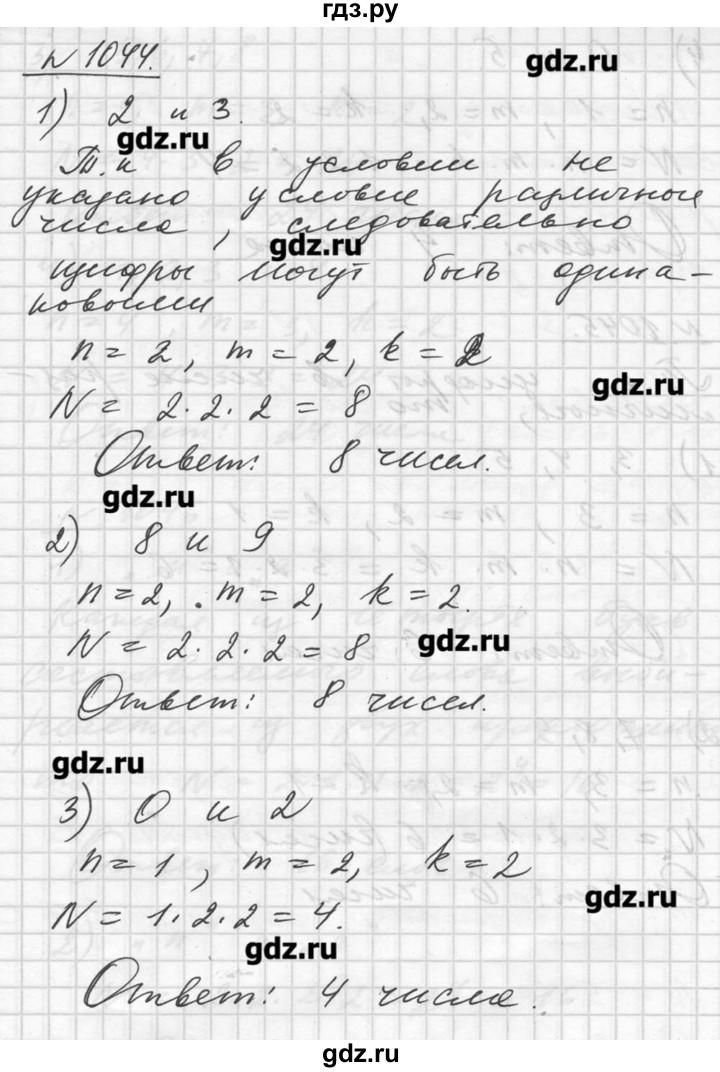 гдз.ру
№ 1044.
gdz.ru
1) 2 и 3.
gdz.ru
Т.к в условии не
указано условие различные
числа, следовательно
gdz.ru
цифры могут быть одина-
ковыми
n = 2, m = 2, k = 2
gdz.ru
N = 2·2·2 = 8
Ответ: 8 чисел.
gdz.ru
2) 8 и 9
n = 2, m = 2, k = 2.
N = 2·2·2 = 8
gdz.ru
Ответ: 8 чисел.
gdz.ru
3) 0 и 2
n = 1, m = 2, k = 2
gdz.ru
N = 1·2·2 = 4.
gdz.ru
Ответ: 4 числа.
gdz.ru